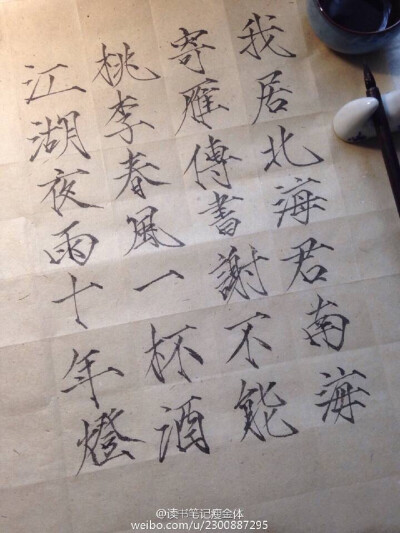 我居北海君南海
寄雁傳書謝不能
桃李春風一杯酒
江湖夜雨十年燈
@读书笔记瘦金体
weibo.com/u/2300887295